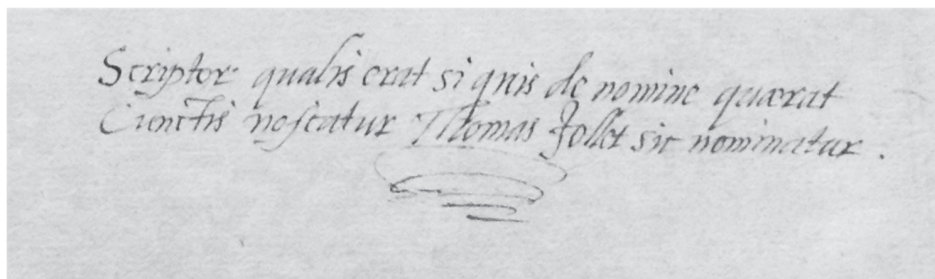 Scriptor qualis erat si quis de nomine quærat
Cunctis noscatur Thomas Jollet sic nominatur.